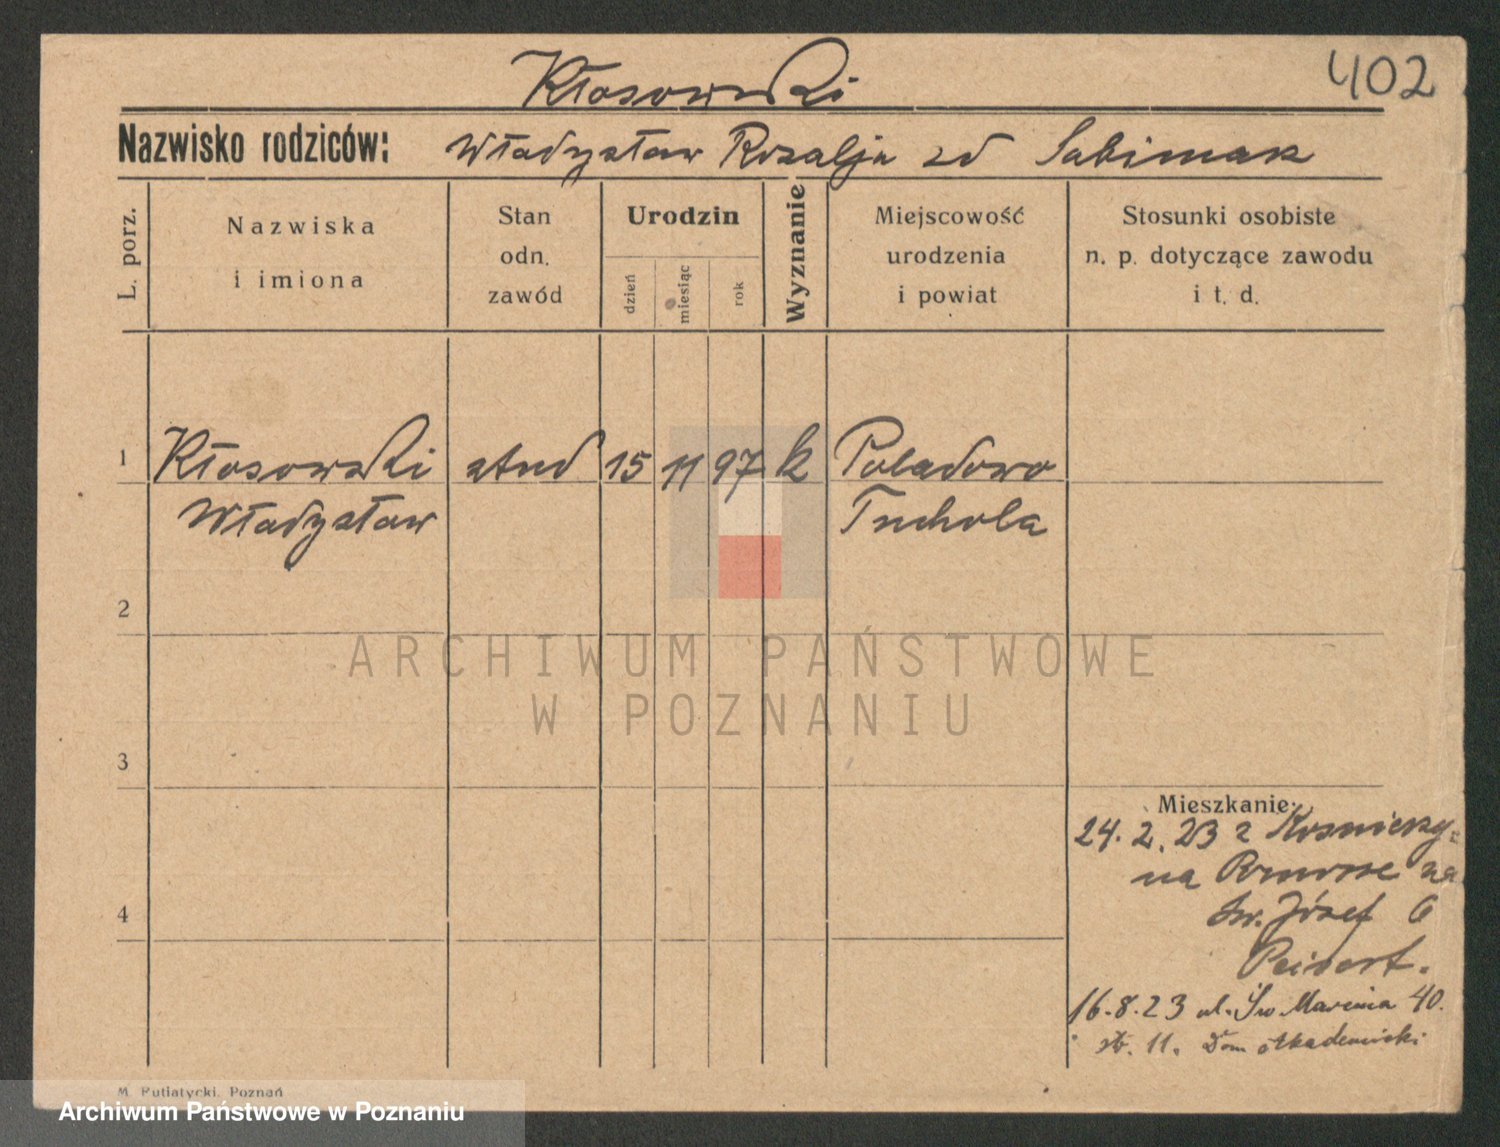 402
Kłosowski
Nazwisko rodziców: Władysław Rozalja zd
L. porz.
Nazwiska
i imiona
Stan
odn.
zawód
Urodzin
dzień
miesiąc
rok
Wyznanie
Miejscowość
urodzenia
i powiat
Stosunki osobiste
n. p. dotyczące zawodu
i t. d.
1 Kłosowski stud 15 11 97 k
Władysław Tuchola
2
ARCHIWUM PAŃSTWOWE
W POZNANIU
3
Mieszkanie:
24. 2. 23 z
na Pomorze na
4
św. Józef 6
Peisert.
16. 8. 23 ul. Św Marcina 40.
str. 11. Dom Akademicki
M. Putiatycki, Poznań
Archiwum Państwowe w Poznaniu